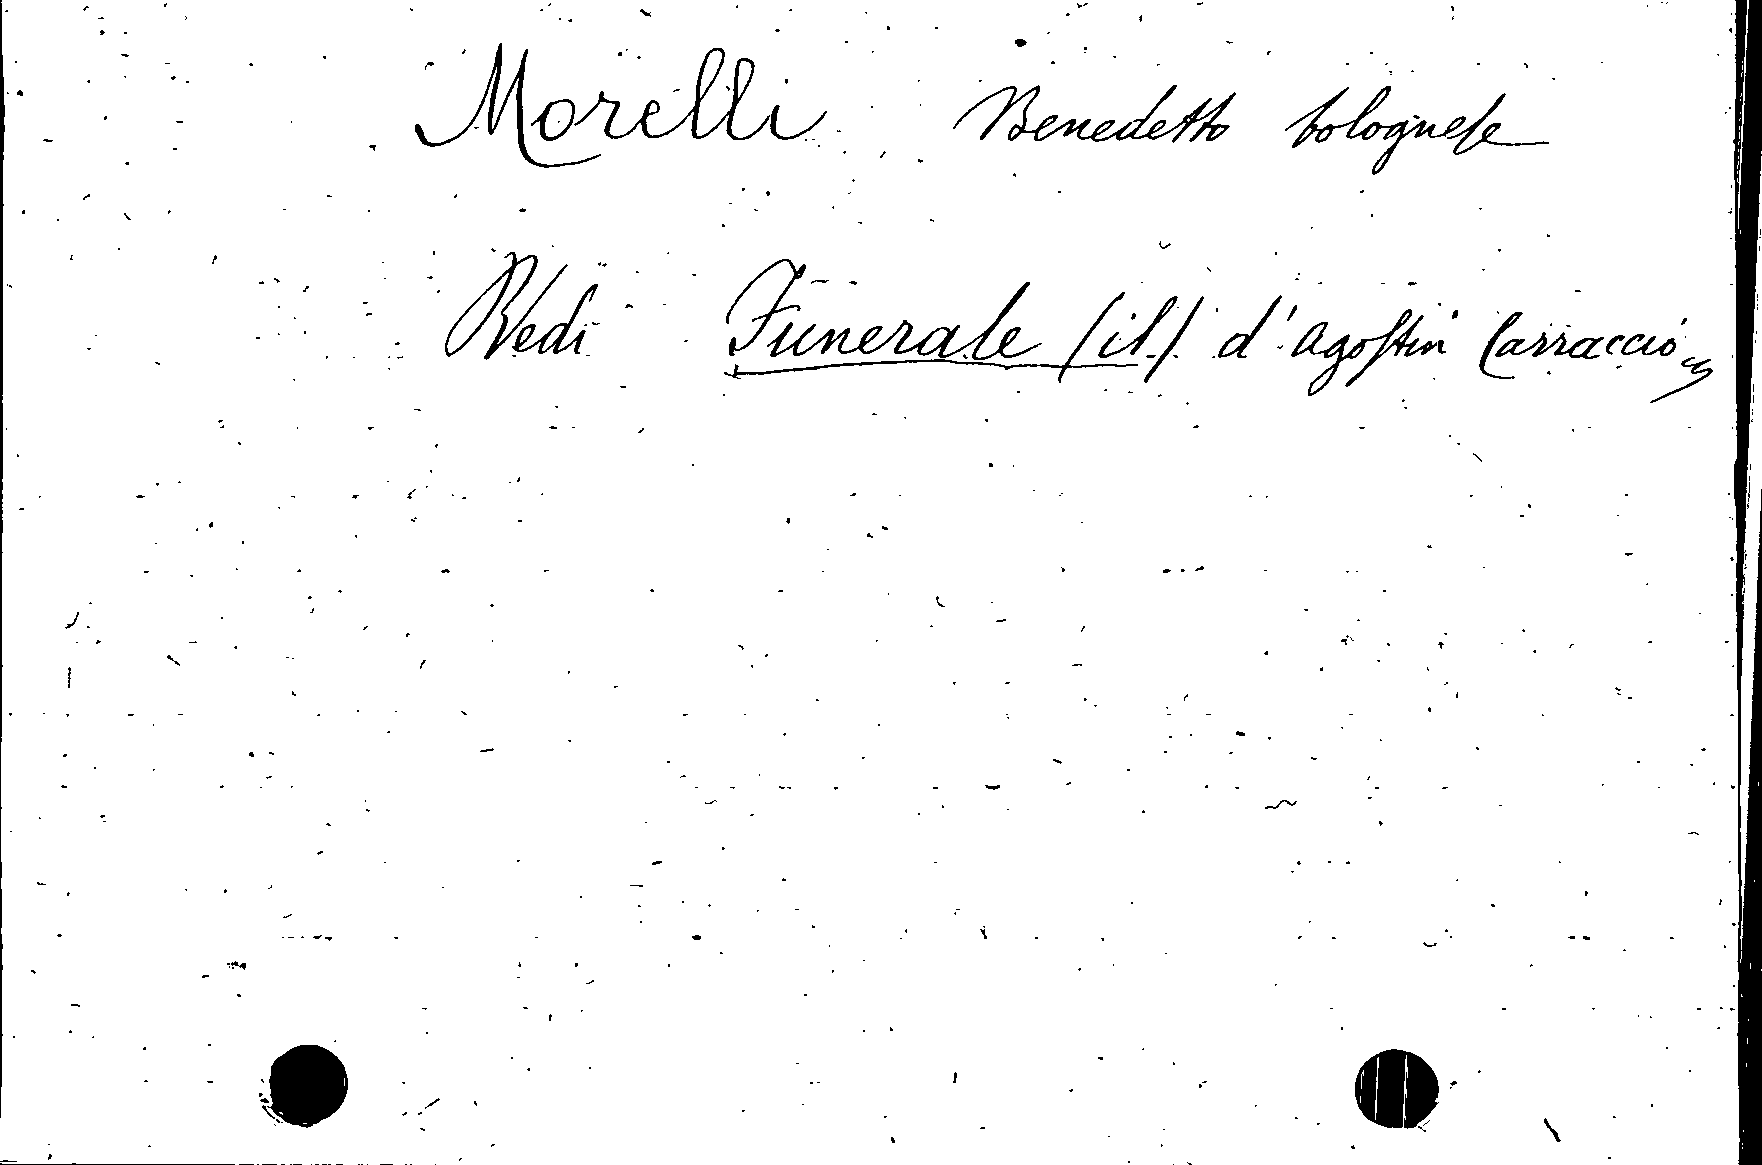 Morelli Benedetto bolognese
Vedi Funerale (il) d'Agostin Carraccio